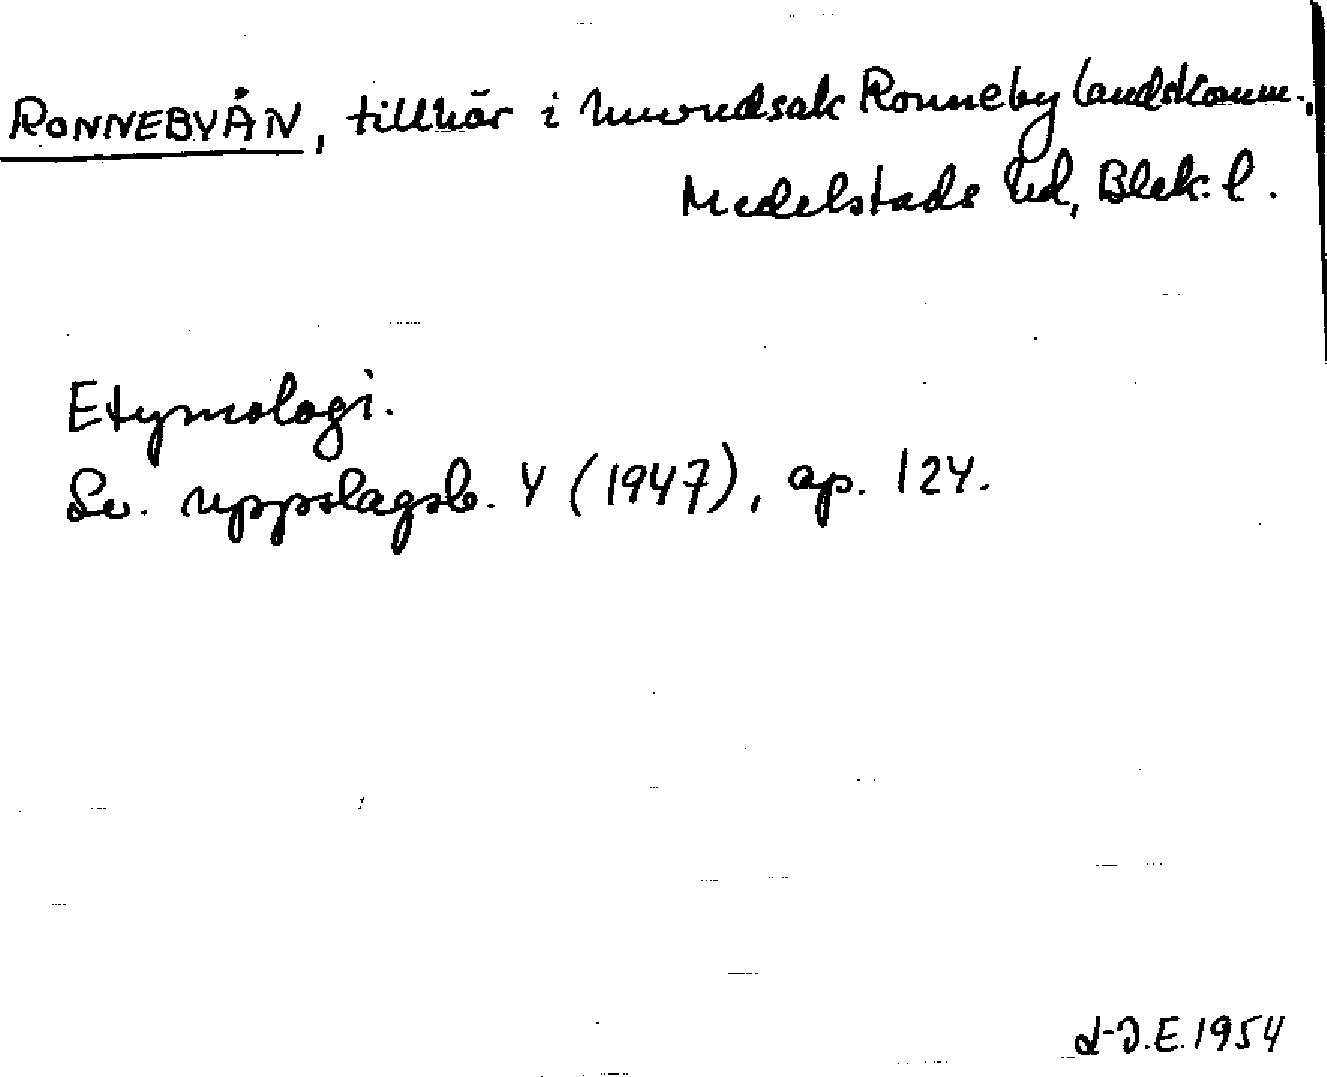 RONNEBYÅN, tillhör i huvudsak Ronneby landskomm.,
Medelstads hd, Blek. l.
Etymologi.
Sv. uppslagsb. 4 (1947), sp. 124.
L-J.E. 1954